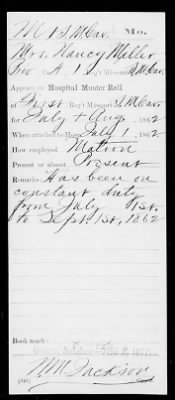 M | 1 S.M. Cav. | Mo.
Mrs. Nancy Miller
Pvt., A, 1 Reg't Missouri S.M. Cav.
Appears on Hospital Muster Roll
of First Reg't Missouri S.M. Cav.
for July & Aug, 1862
When attached to Hosp. July 1, 1862
How employed Matron
Present or absent Present
Remarks: Has been on
constant duty
from July 1st.
to Sept. 1st, 1862
Book mark:
W.M. Jackson